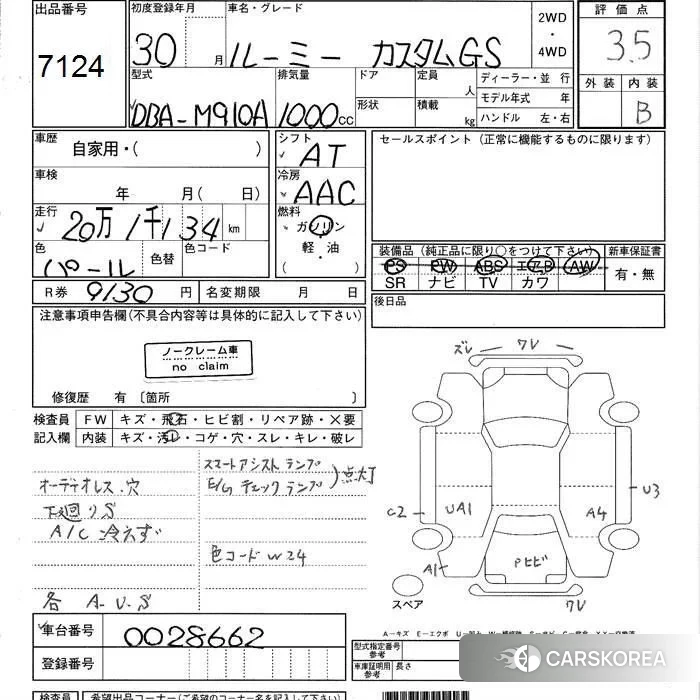 出品番号
7124
初度登録年月
30 月
車名・グレード
ルーミー カスタムGS
2WD
・
4WD
評価点
3.5
外装 内装
B
型式
DBA-M910A
排気量
1000cc
ドア
形状
定員 人
積載 kg
ディーラー・並行
モデル年式 年
ハンドル 左・右
車歴
自家用・( )
シフト
AT
セールスポイント (正常に機能するものに限ります)
車検
年 月( 日)
冷房
AAC
走行
20万1千134km
燃料
ガソリン
軽・油
( )
色
パール
色替
色コード
装備品 (純正品に限り○をつけて下さい)
PS PW ABS エアB AW
SR ナビ TV カワ
新車保証書
有・無
R券 9130 円
名変期限 月 日
後日品
注意事項申告欄(不具合内容等は具体的に記入して下さい)
ノークレーム車
no claim
修復歴 有 〔箇所 〕
検査員
記入欄
FW キズ・飛石・ヒビ割・リペア跡・×要
内装 キズ・汚レ・コゲ・穴・スレ・キレ・破レ
スマートアシストランプ
E/Gチェックランプ
)点灯
オーディオレス・穴
下廻りS
A/C 冷えず
色コード W24
各 A.U.S
ズレ ワレ
C2
UA1
A4
U3
A1
Pヒビ
ワレ
スペア
車台番号
0028662
登録番号
型式指定番号
参考
車庫証明用
参考
長さ
CARSKOREA
検査員
希望出品コーナー(ご希望のコーナー名を記入して下さい)